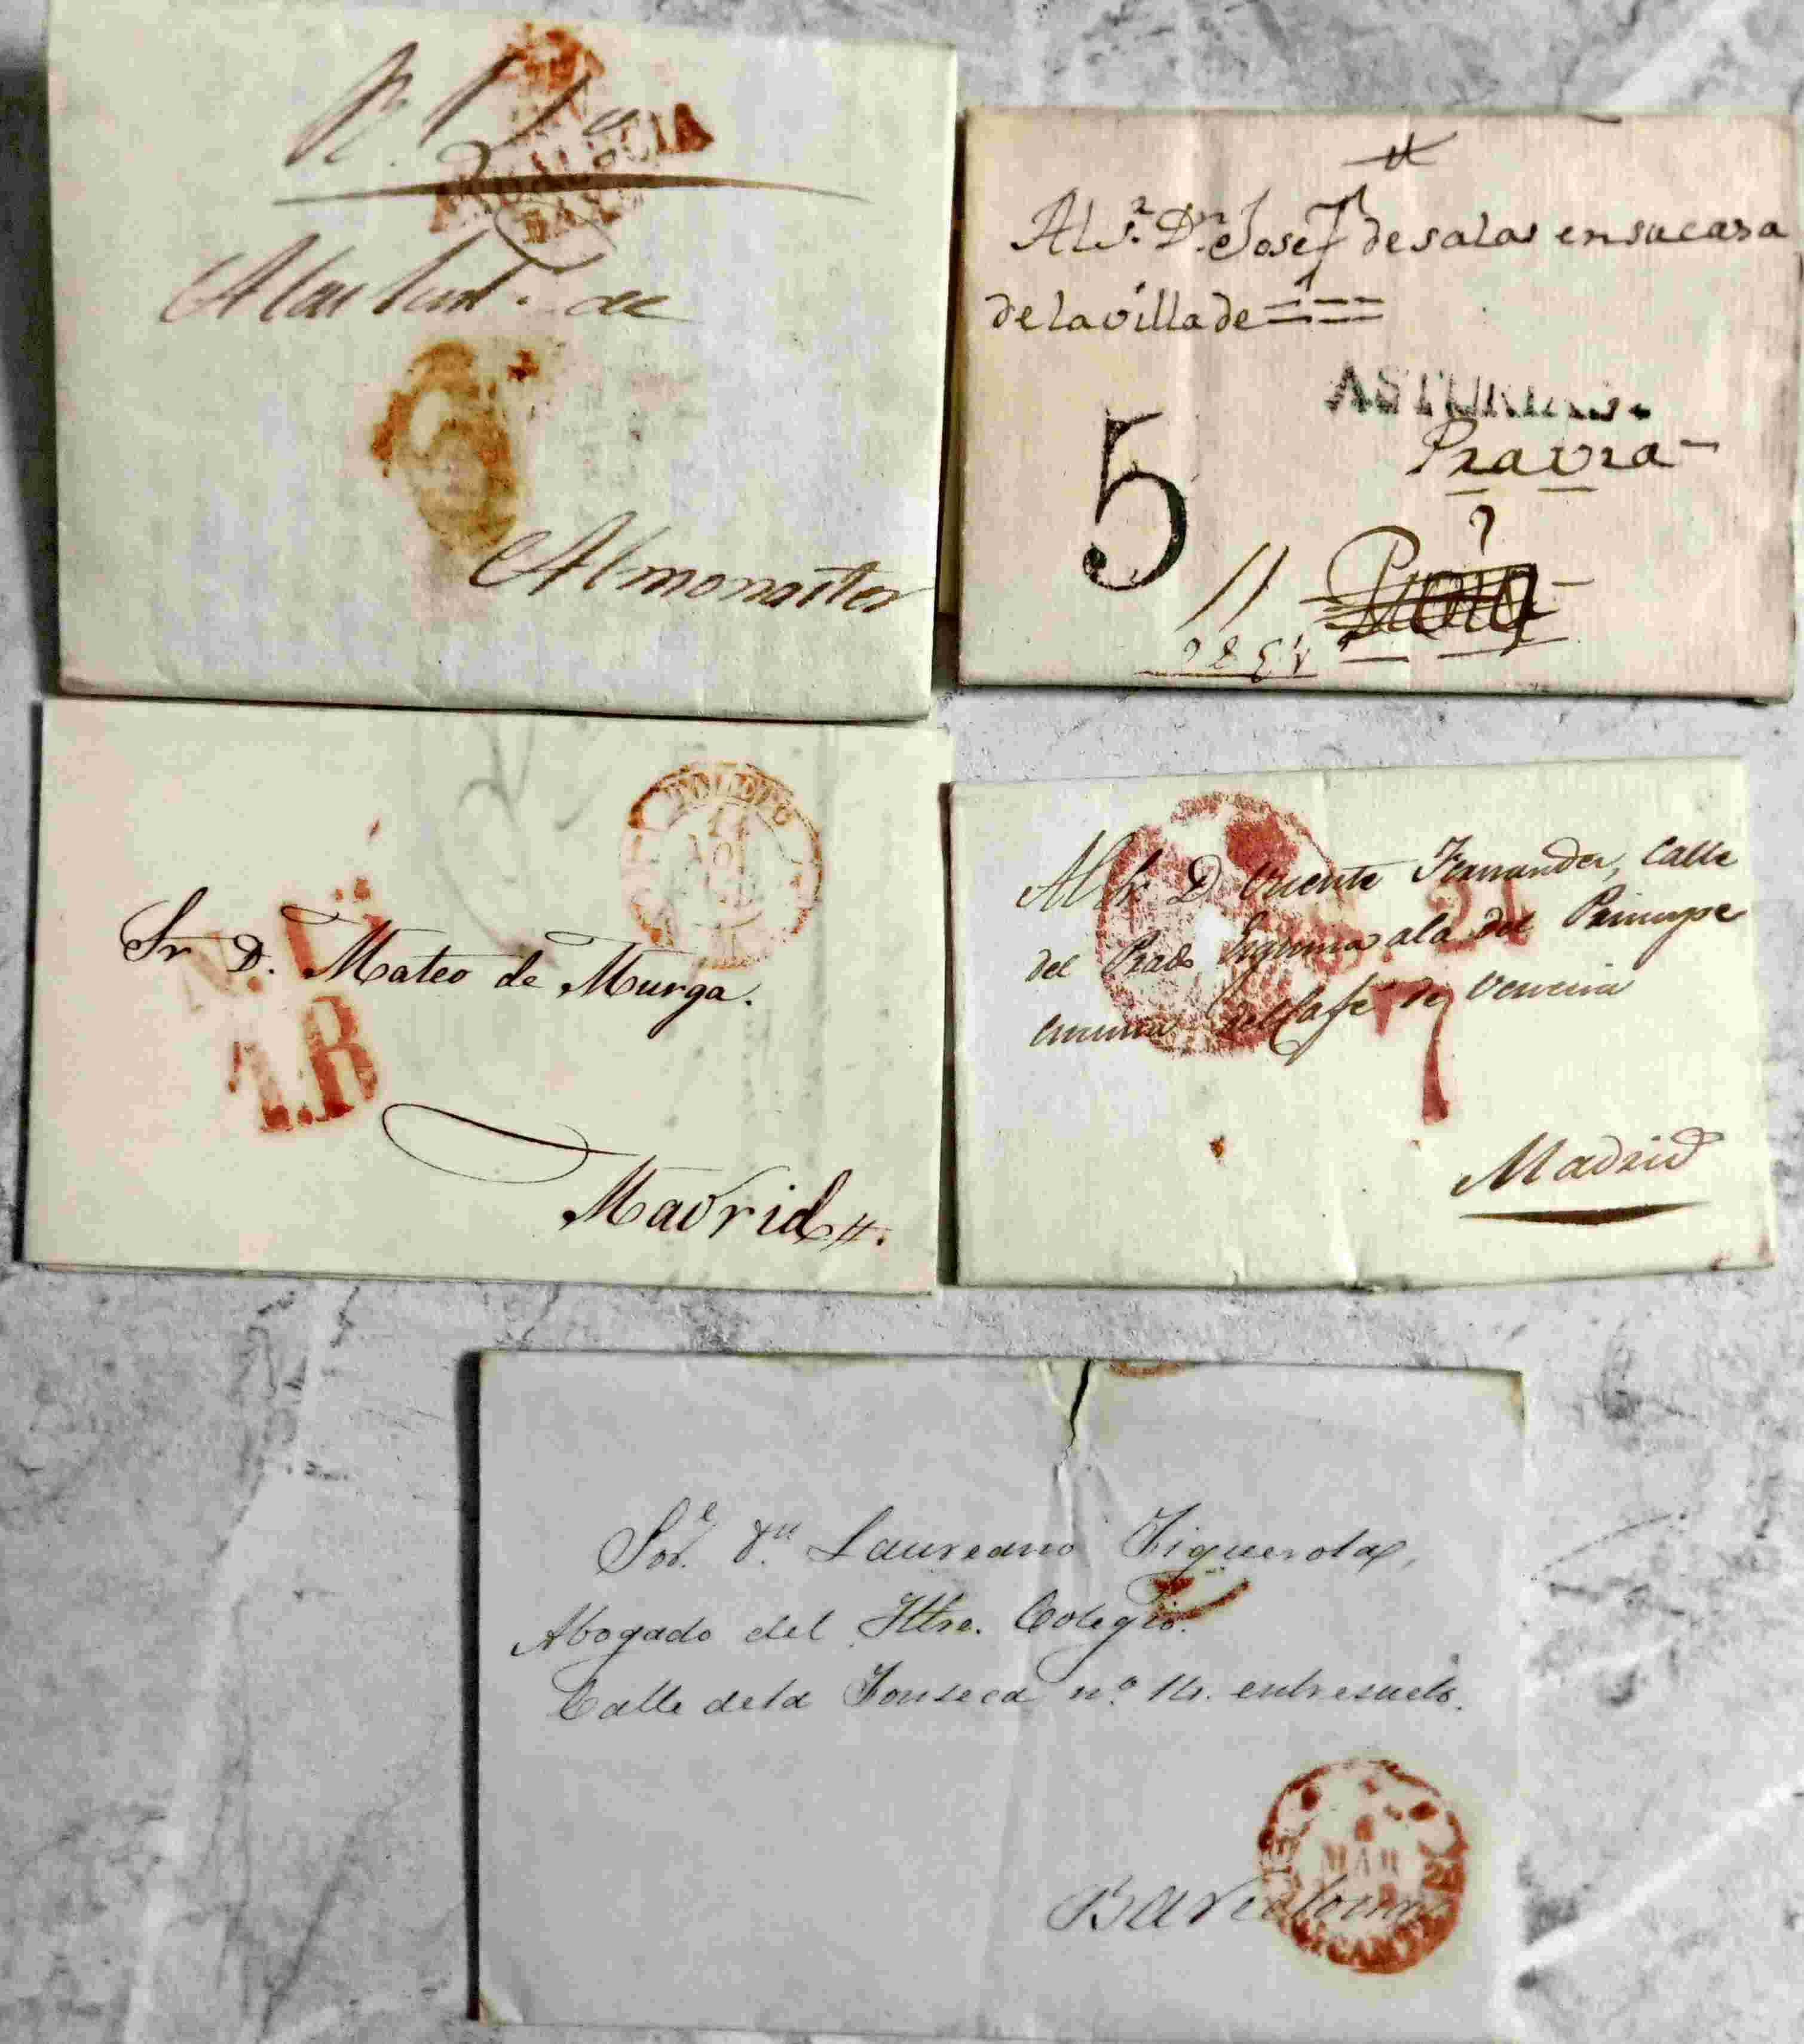 ANDALUCIA
BAXA
Almonaster
Al S.r D.n Josef de salas en su casa
de la villa de
ASTURIAS.
Pravia
5
TOLEDO
Sr. D. Mateo de Murga.
1.R
Madrid
Al Sr. D. Vicente Fernandez, Calle
del Prado Esquina a la del Principe
encima del Cafe de Venecia
7
Madrid
Sor. Dn. Laureano Figuerola,
Abogado del Iltre. Colegio.
Calle de la Fonseca nº 14. entresuelo.
MAR
Barcelona